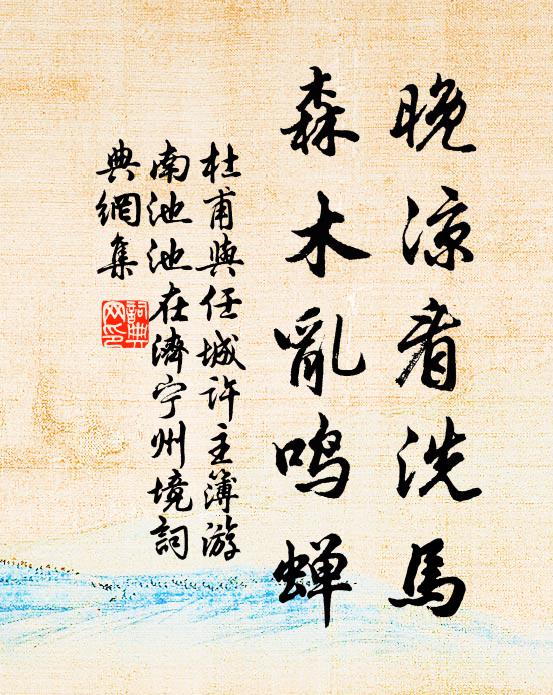 晚凉看洗馬
森木亂鳴蝉
杜甫與任城许主簿游
南池池在濟宁州境詞
典網集
詞典
网印